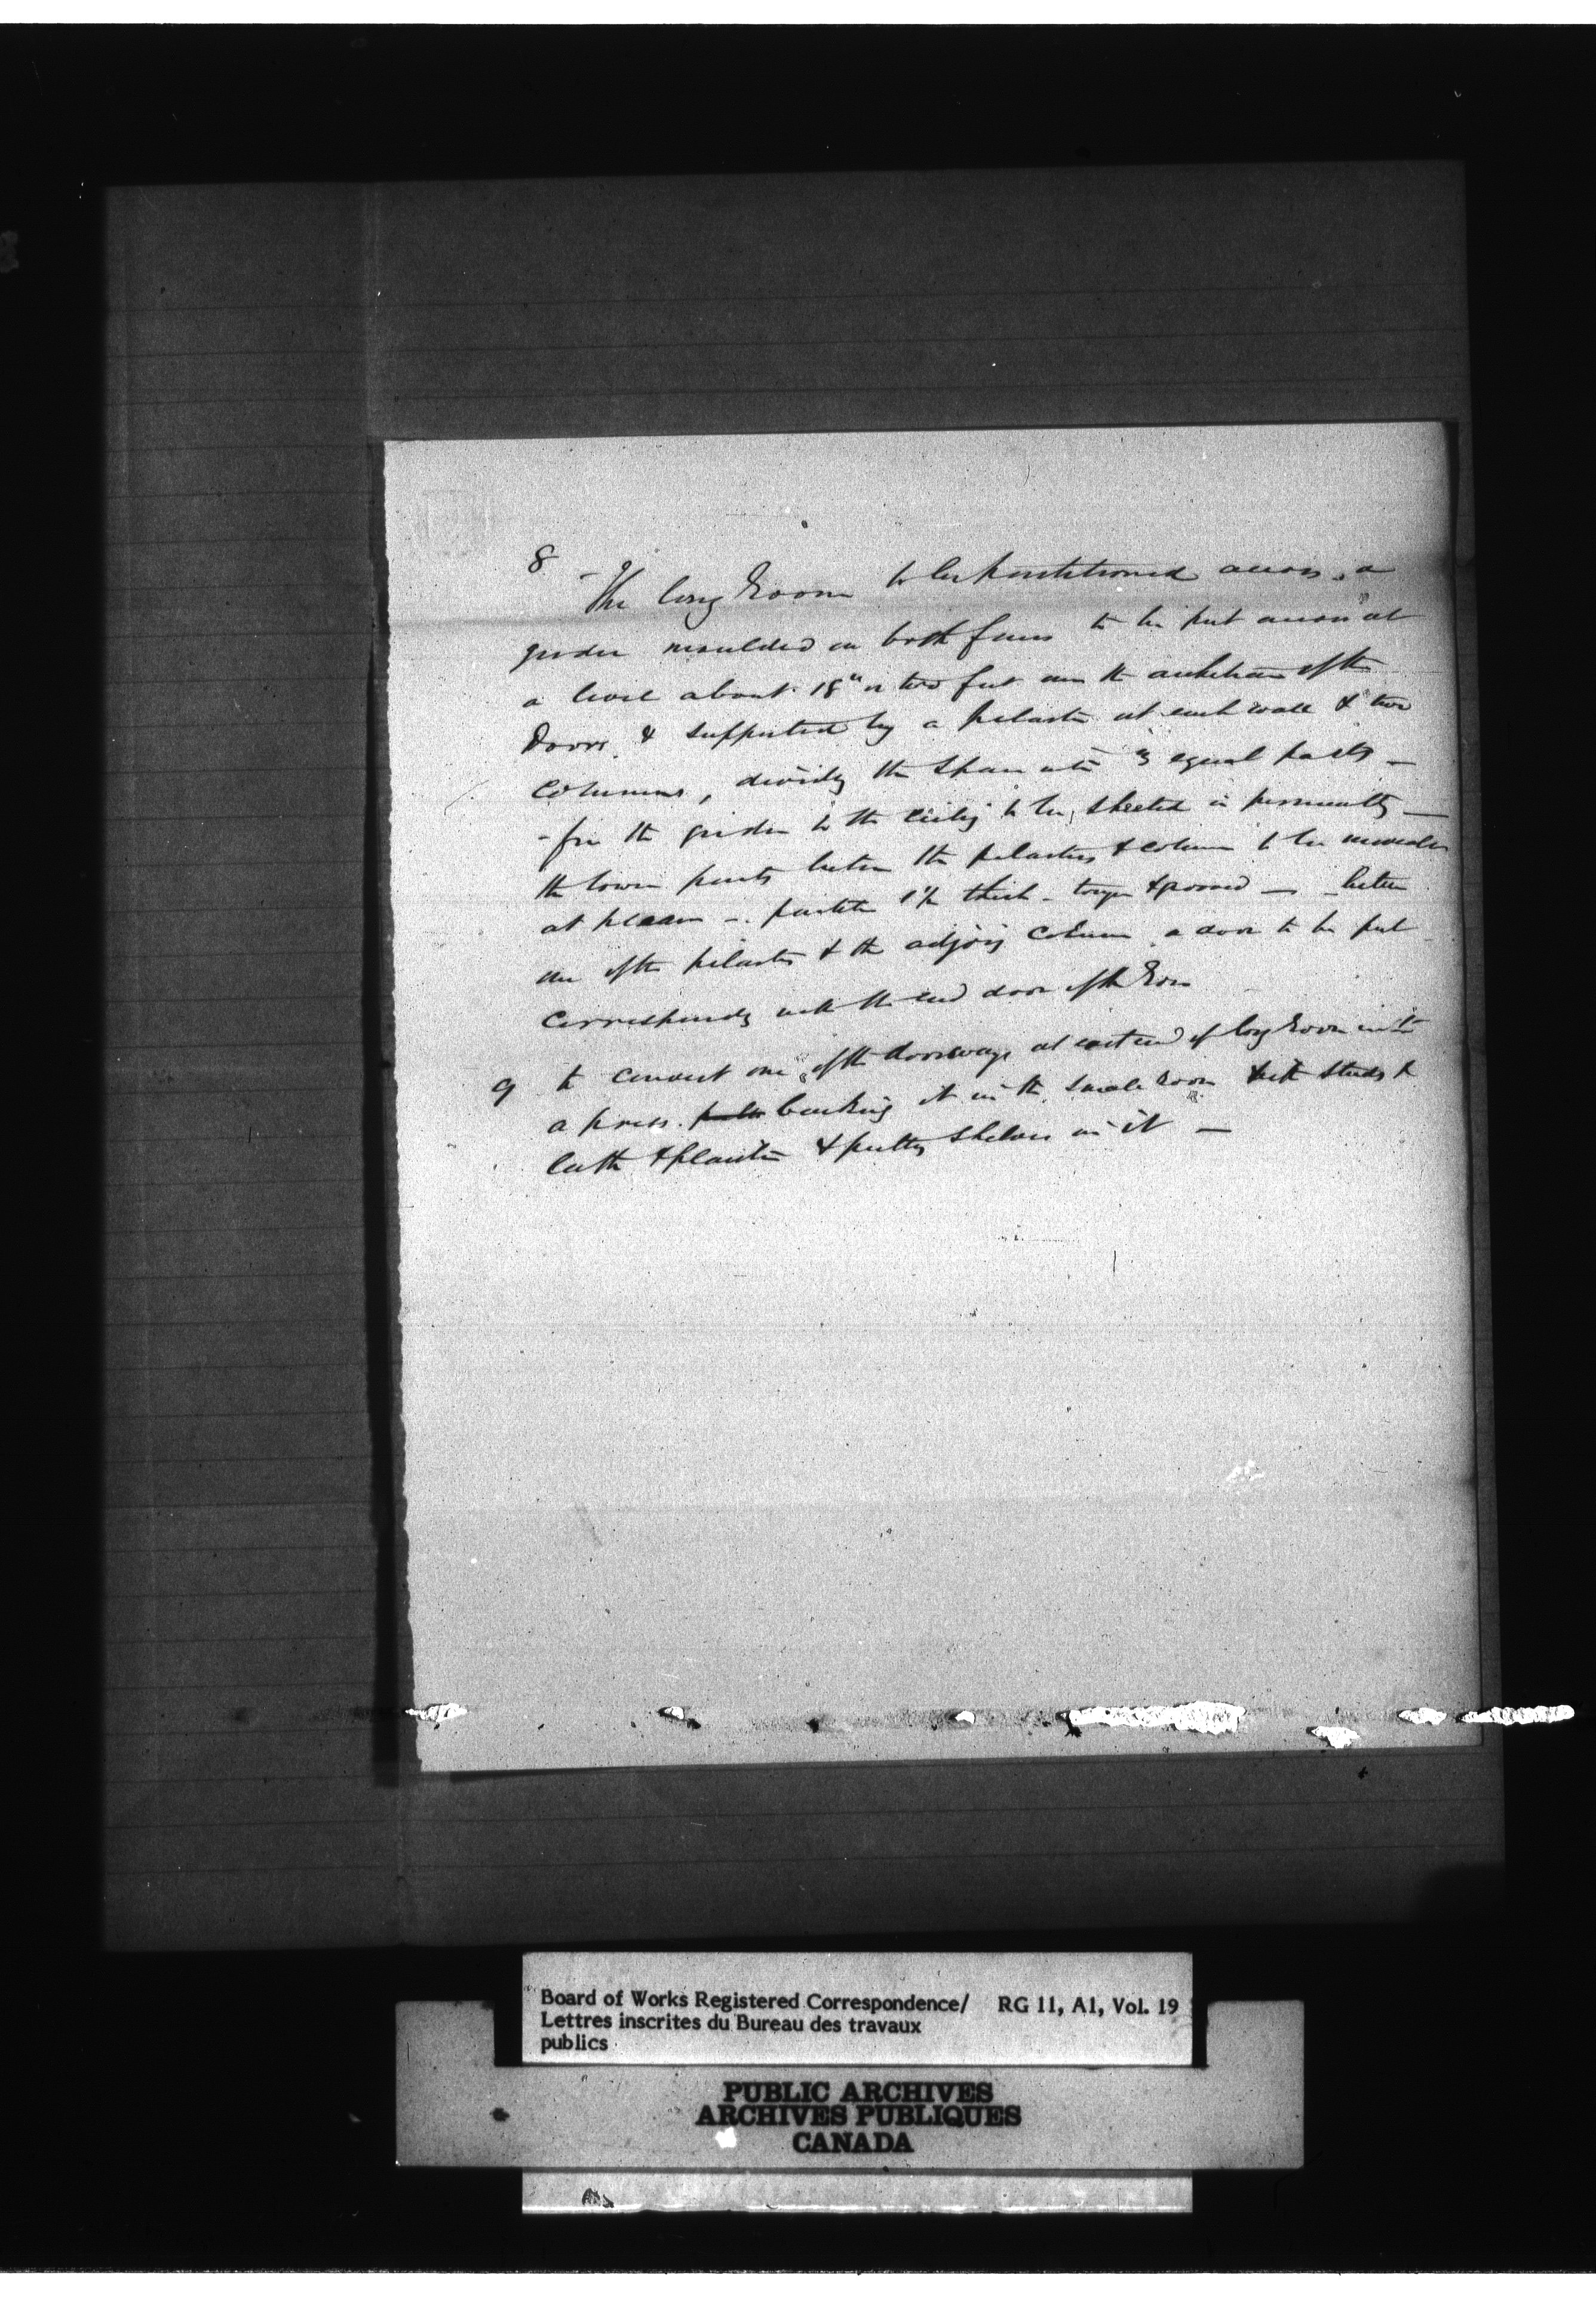 8 - The long Room to be partitioned across, a
girder moulded on both faces to be put across at
a level about 18" or two feet over the architrave of the
Doors & supported by a pilaster at each wall & two
columns, dividing the span into 3 equal parts -
- from the girder to the ceiling to be sheeted in permanently -
the lower parts between the pilasters & column to be moveable
at pleasure -. partition 1½ thick - tongued & grooved - - between
one of the pilasters & the adjoing column a door to be put
corresponding with the end door of the Room
9 to convert one of the doorways at east end of long Room into
a press. backing it in the small room with studs &
lath & plaister & putting shelves in it -
Board of Works Registered Correspondence/ RG 11, A1, Vol. 19
Lettres inscrites du Bureau des travaux
publics
PUBLIC ARCHIVES
ARCHIVES PUBLIQUES
CANADA